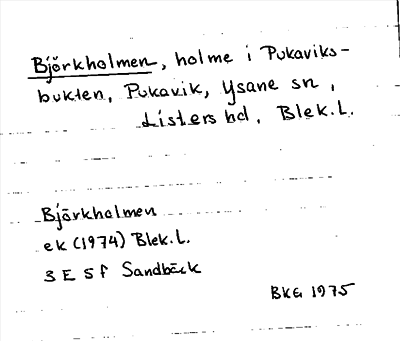 Björkholmen, holme i Pukaviks-
bukten, Pukavik, Ysane sn,
Listers hd, Blek.L.
Björkholmen
ek (1974) Blek.L.
3 E 5 f Sandbäck
BKG 1975